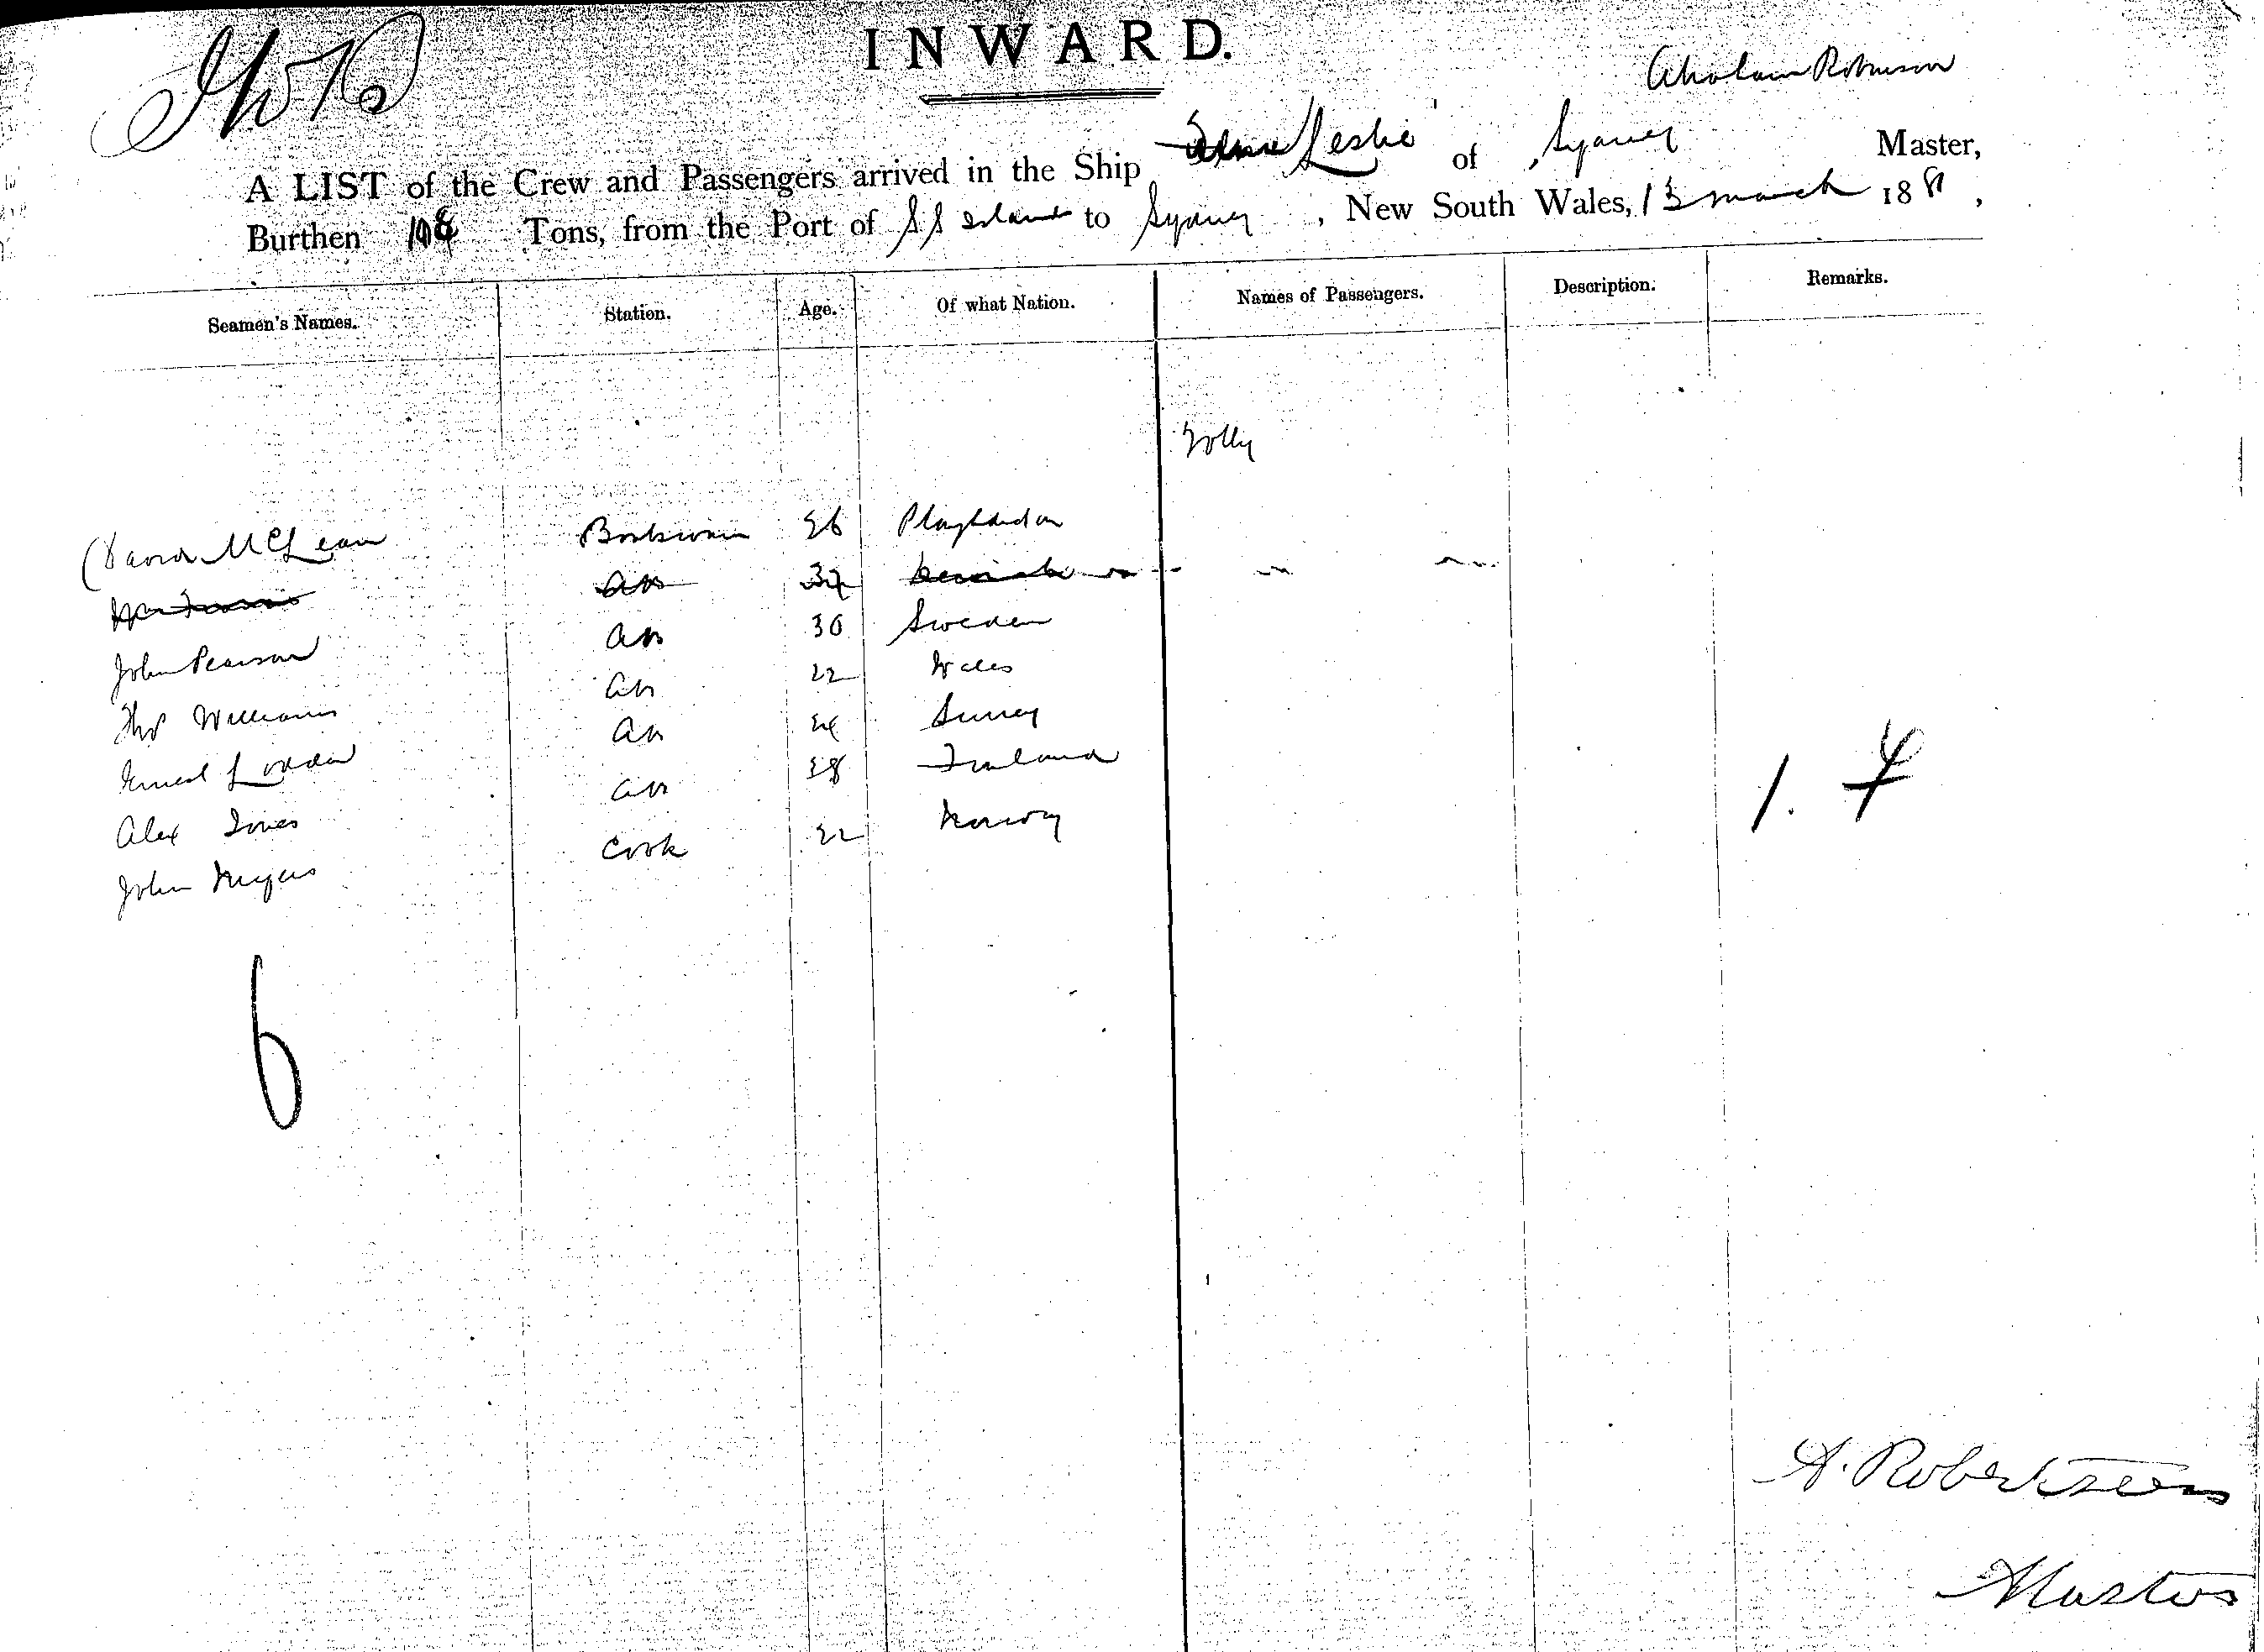 INWARD.
Robinson
A LIST of the Crew and Passengers arrived in the Ship Leslie of Sydney Master,
Burthen 108 Tons, from the Port of SS Island to Sydney, New South Wales, 13 March 188 ,
Seamen's Names. Station. Age. Of what Nation. Names of Passengers. Description. Remarks.
David McLean Boatswain 26
AB
John Pearson AB 30 Sweden
Thos Williams AB 22 Wales
Ernest AB 24 Surrey
Alex Jones AB 38 Finland
John Meyers Cook 22 Norway
1.
6
A. Robertson
Master